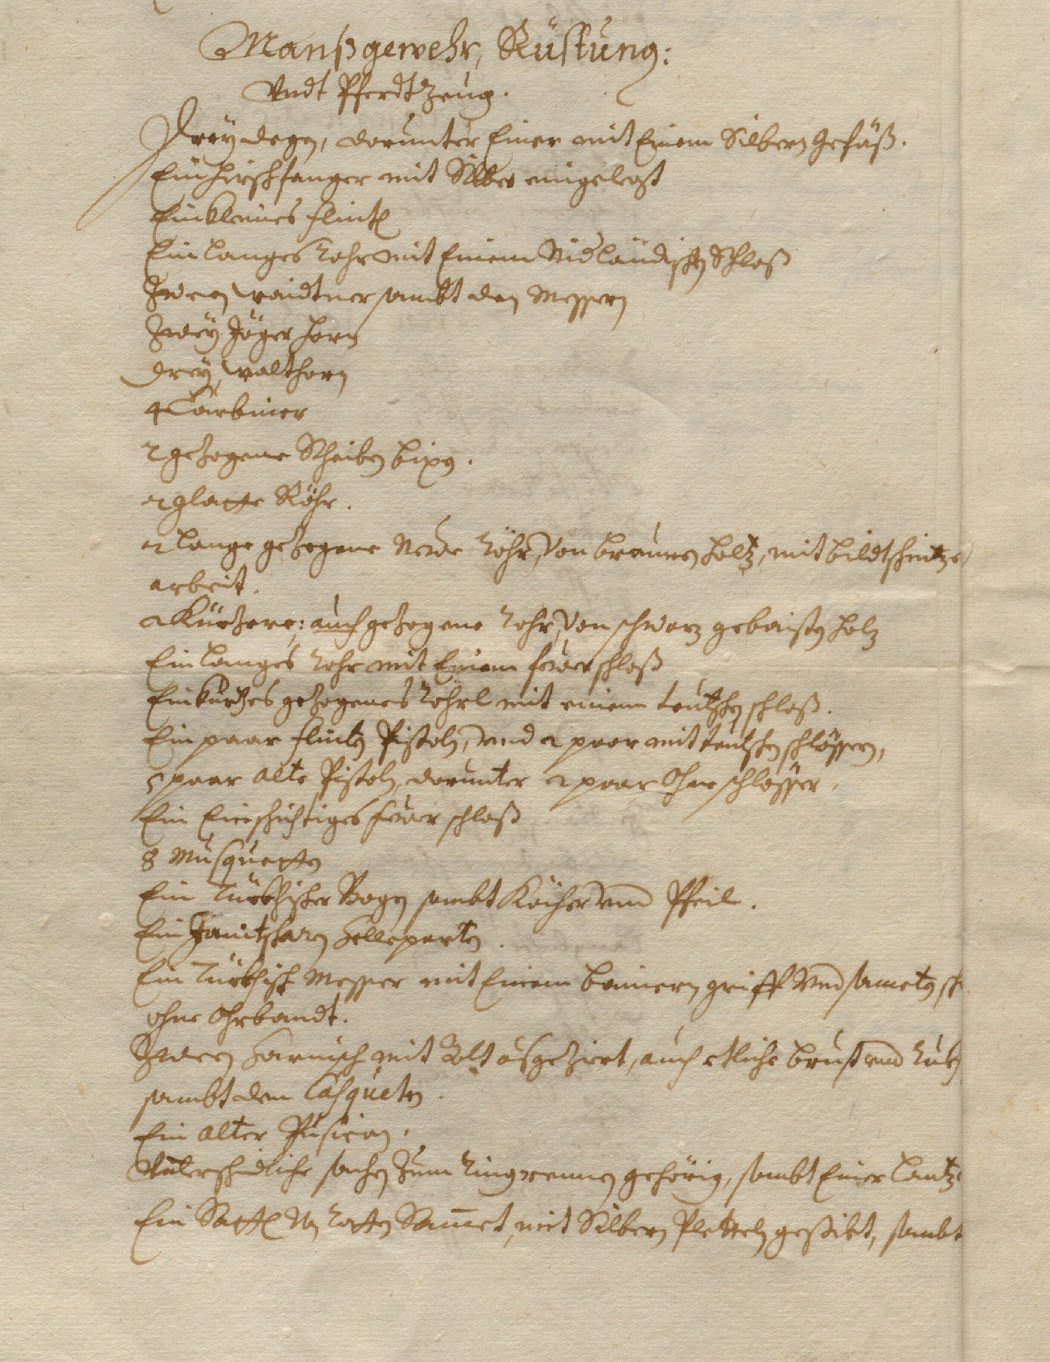 Manßgewehr, Rüstung:
Vndt Pferdt Zeug.
Drey degn, darunter Einer mit Einem Silbern gefäß.
Ein hirschfanger mit Silber eingelegt
Ein kleines flintl
Ein langes Rohr mit Einem Nidländischn Schloß
Zween waidtner sambt den Messern
Zwey Jäger horn
Drey walthorn
4 Carbiner
2 gezogene Scheiben bixn.
2 glatte Röhr.
2 lange gezogene Neue Röhr, Von braunen holtz, mit bildtschnitzer
arbeit.
2 Kürzere: auch gezogene rohr, Von schwarz gebaistn holz
Ein langes rohr mit Einem feüerschloß
Ein kurzes gezogenes röhrl mit einem teutschn schloß.
Ein paar flintn Pistoln, vnd 2 paar mit teutschn schlössern,
5 paar alte Pistoln, darunter 2 paar Ohne schlösser.
Ein Einschichtiges feüer schloß
8 Musquettn
Ein Türkhischer Bogn sambt Köcher vnd Pfeil.
Ein Janitscharn hellepartn.
Ein Türkhisch Messer mit Einem beinern griff vnd sametn
ohne Ohrbandt.
Zween Harnisch mit Golt ausgeziert, auch etliche brust vnd rukh
sambt den Casquetn.
Ein alter Pusican.
Vnterschidliche sachn Zum ringrennen gehörig, sambt Einer lantzn
Ein Sattl Vn rottn Sammet, mit Silbern Plettln gestikt, sambt